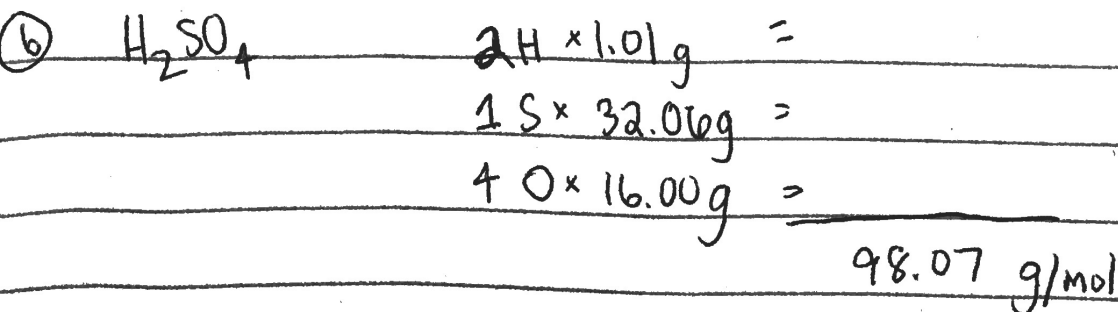 6 H₂SO₄ 2 H × 1.01 g =
1 S × 32.06g =
4 O × 16.00 g =
98.07 g/mol